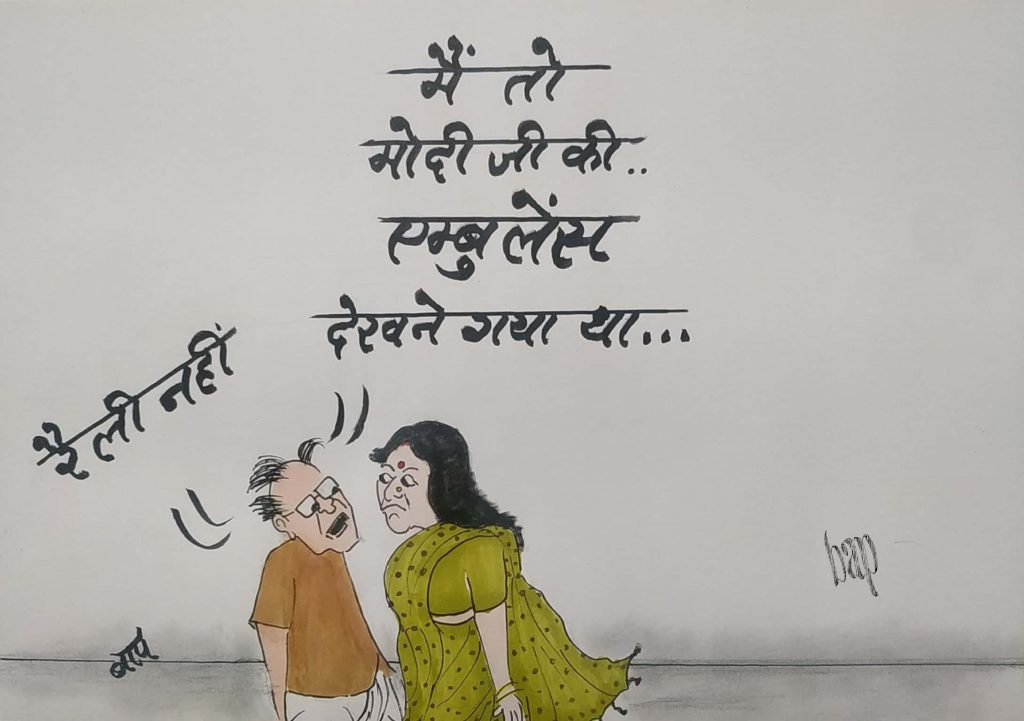 मैं तो
मोदी जी की..
एम्बुलेंस
देखने गया था...
रैली नहीं
bap
बाप